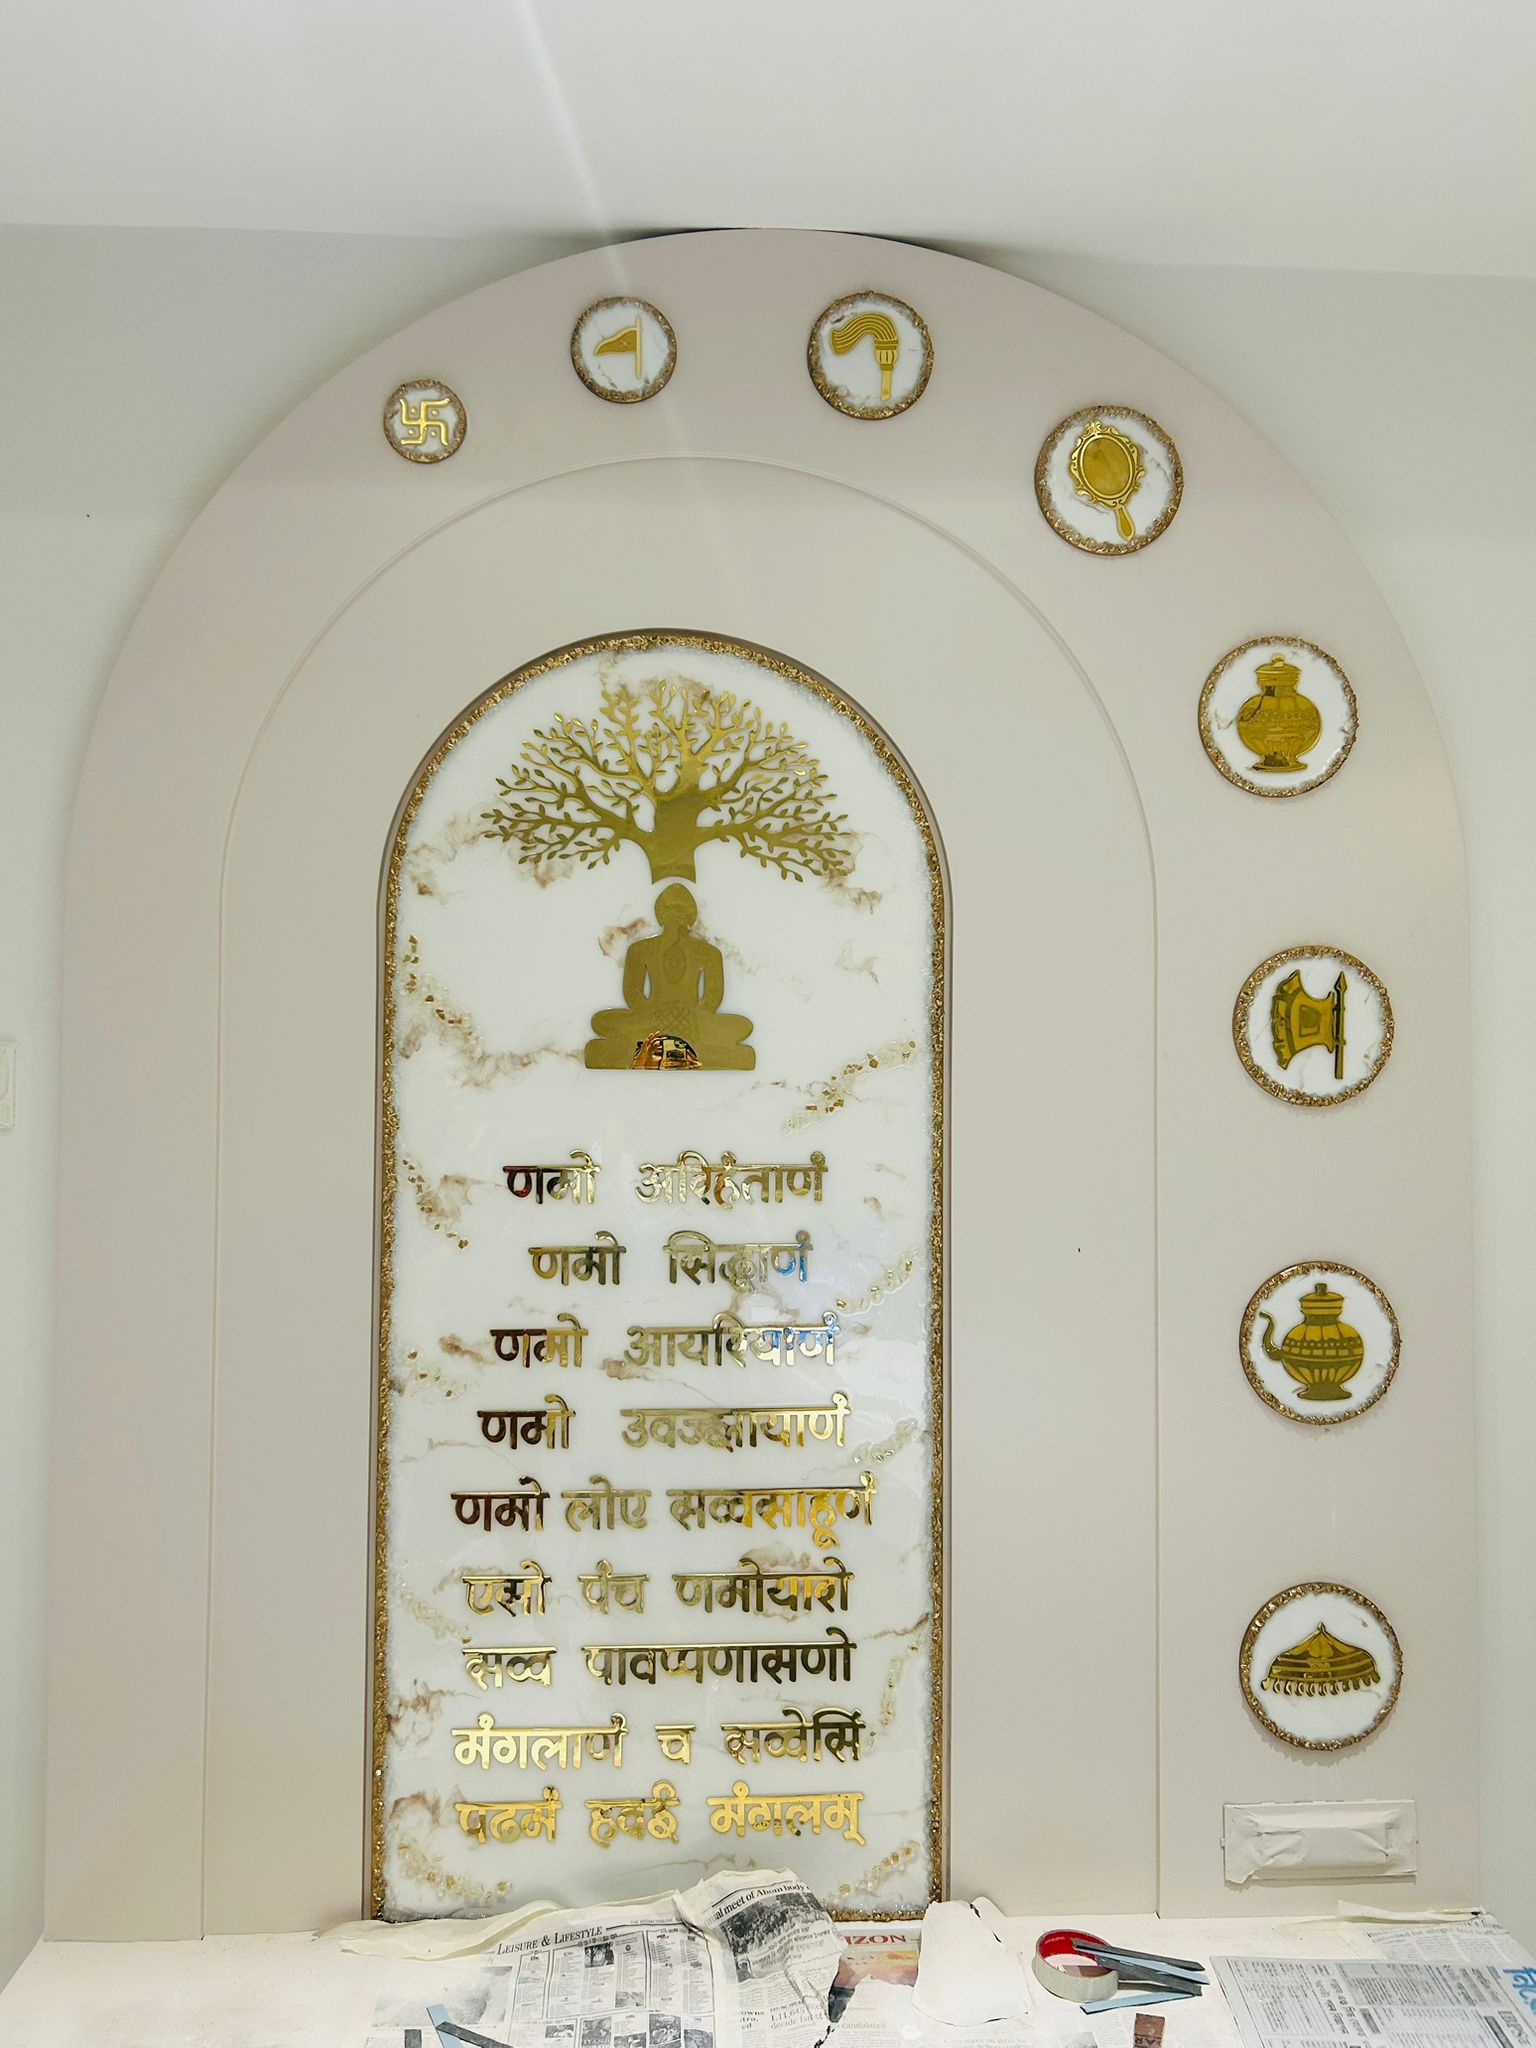 णमो अरिहंताणं
णमो सिद्धाणं
णमो आयरियाणं
णमो उवज्झायाणं
णमो लोए सव्वसाहूणं
एसो पंच णमोयारो
सव्व पावप्पणासणो
मंगलाणं च सव्वेसिं
पढमं हवई मंगलम्
LEISURE & LIFESTYLE
meet of Ahom body
IZON
candidates